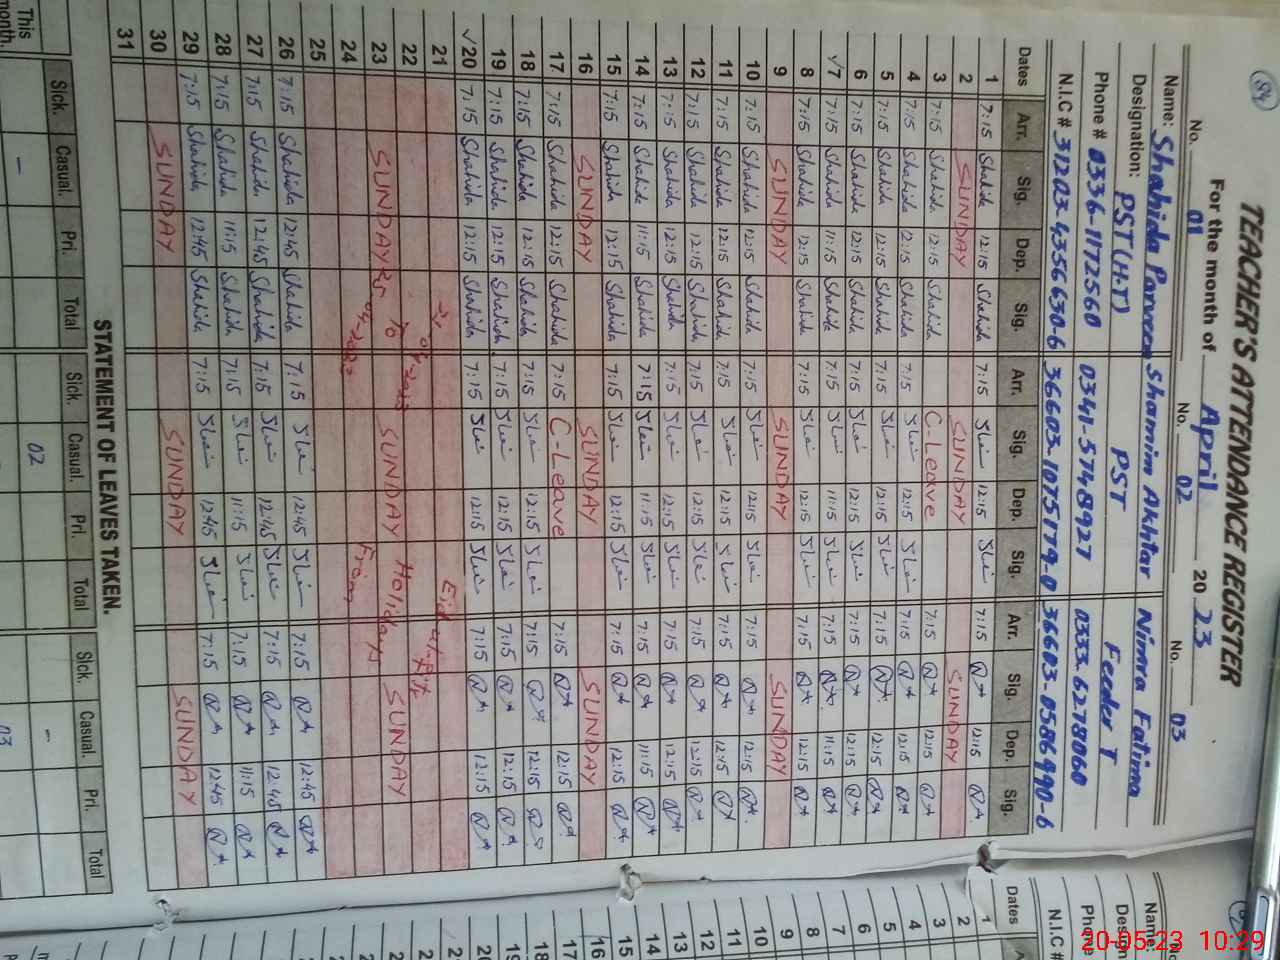 84
TEACHER'S ATTENDANCE REGISTER
For the month of April 2023
No. 01 No. 02 No. 03
Name: Shahida Parveen Shamim Akhtar Nimra Fatima
Designation: PST (H.T) PST Feeder T
Phone # 0336-1172560 0341-5748927 0333-6278060
N.I.C # 31203-4356630-6 36603-1075179-0 36603-0586990-6
Dates Arr. Sig. Dep. Sig. Arr. Sig. Dep. Sig. Arr. Sig. Dep. Sig.
1 7:15 Shahida 12:15 Shahida 7:15 12:15 7:15 12:15
2 SUNDAY SUNDAY SUNDAY
3 7:15 Shahida 12:15 Shahida C-Leave 7:15 12:15
4 7:15 Shahida 12:15 Shahida 7:15 12:15 7:15 12:15
5 7:15 Shahida 12:15 Shahida 7:15 12:15 7:15 12:15
6 7:15 Shahida 12:15 Shahida 7:15 12:15 7:15 12:15
√7 7:15 Shahida 11:15 Shahida 7:15 11:15 7:15 11:15
8 7:15 Shahida 12:15 Shahida 7:15 12:15 7:15 12:15
9 SUNDAY SUNDAY SUNDAY
10 7:15 Shahida 12:15 Shahida 7:15 12:15 7:15 12:15
11 7:15 Shahida 12:15 Shahida 7:15 12:15 7:15 12:15
12 7:15 Shahida 12:15 Shahida 7:15 12:15 7:15 12:15
13 7:15 Shahida 12:15 Shahida 7:15 12:15 7:15 12:15
14 7:15 Shahida 11:15 Shahida 7:15 11:15 7:15 11:15
15 7:15 Shahida 12:15 Shahida 7:15 12:15 7:15 12:15
16 SUNDAY SUNDAY SUNDAY
17 7:15 Shahida 12:15 Shahida 7:15 C-Leave 7:15 12:15
18 7:15 Shahida 12:15 Shahida 7:15 12:15 7:15 12:15
19 7:15 Shahida 12:15 Shahida 7:15 12:15 7:15 12:15
√20 7:15 Shahida 12:15 Shahida 7:15 12:15 7:15 12:15
21 Eid-ul-Fitr
22 Holidays
23 SUNDAY to SUNDAY SUNDAY
24 From
25
26 7:15 Shahida 12:45 Shahida 7:15 12:45 7:15 12:45
27 7:15 Shahida 12:45 Shahida 7:15 12:45 7:15 12:45
28 7:15 Shahida 11:15 Shahida 7:15 11:15 7:15 11:15
29 7:15 Shahida 12:45 Shahida 7:15 12:45 7:15 12:45
30 SUNDAY SUNDAY SUNDAY
31
STATEMENT OF LEAVES TAKEN.
Sick. Casual. Pri. Total Sick. Casual. Pri. Total Sick. Casual. Pri. Total
This month. - 02 -
03
Name
Design
Phone
N.I.C #
Dates
1
2
3
4
5
6
7
8
9
10
11
12
13
14
15
16
17
18
19
20
20-05-23 10:29